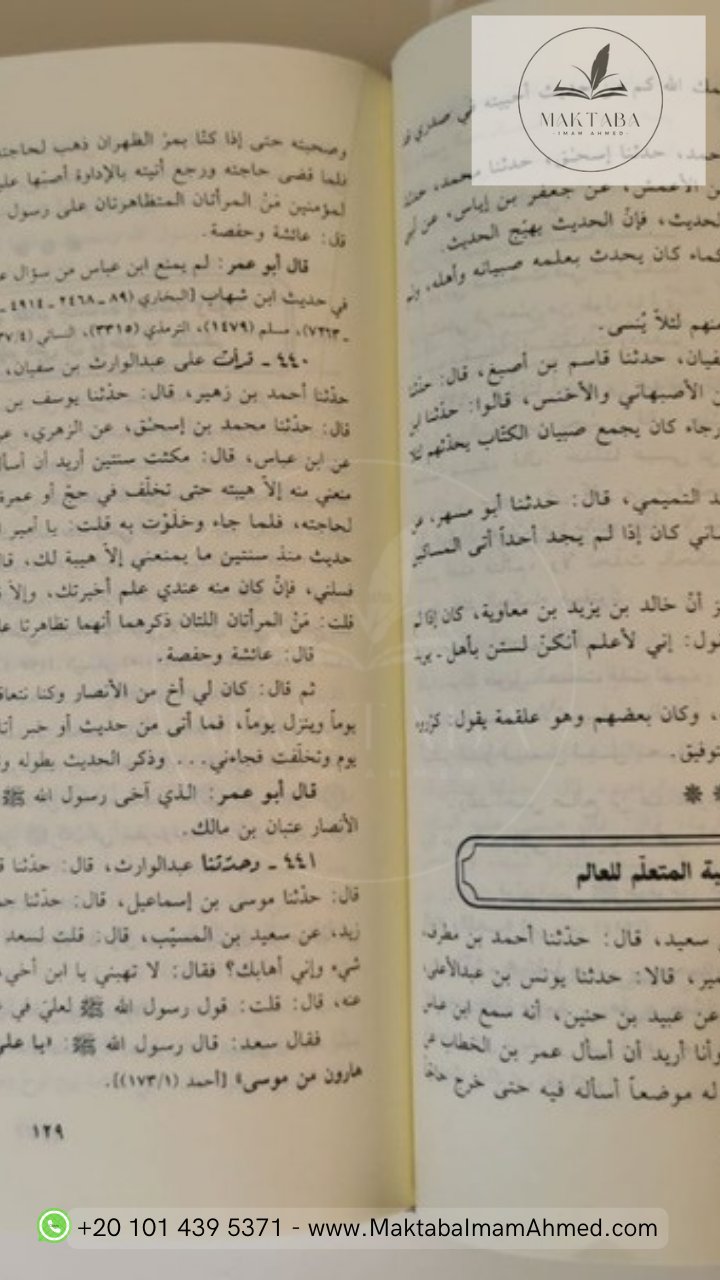 MAKTABA
-IMAM AHMED-
الله كم
في صدري
حدثنا إسحٰق، حدثنا محمد، حدثنا
الأعمش، عن جعفر بن إياس، عن أبي
لحديث، فإنّ الحديث يهيّج الحديث.
كماء كان يحدث بعلمه صبيانه وأهله،
منهم لئلاّ يُنسى.
فيان، حدثنا قاسم بن أصبغ، قال: حدثنا
ن الأصبهاني والأخنس، قالوا: حدّثنا ابن
رجاء كان يجمع صبيان الكتّاب يحدّثهم لئلا
د التميمي، قال: حدثنا أبو مسهر، عن
ساني كان إذا لم يجد أحداً أتى المساكين
ز أنّ خالد بن يزيد بن معاوية، كان إذا لم
قول: إني لأعلم أنكنّ لستن بأهل ـ يريد
، وكان بعضهم وهو علقمة يقول: كرّروه
توفيق.
بة المتعلّم للعالم
سعيد، قال: حدّثنا أحمد بن مطرف،
ير، قالا: حدثنا يونس بن عبدالأعلى،
عن عبيد بن حنين، أنه سمع ابن عباس
وأنا أريد أن أسأل عمر بن الخطاب عن
له موضعاً أسأله فيه حتى خرج حاجّا
وصحبته حتى إذا كنّا بمرّ الظهران ذهب لحاجته
فلما قضى حاجته ورجع أتيته بالإداوة أصبّها عليه
لمؤمنين مَنْ المرأتان المتظاهرتان على رسول
قال: عائشة وحفصة.
قال أبو عمر: لم يمنع ابن عباس من سؤال ع
في حديث ابن شهاب [البخاري (٨٩ ـ ٢٤٦٨ ـ ٤٩١٤ ـ
ـ ٧٢٦٣)، مسلم (١٤٧٩)، الترمذي (٣٣١٥)، النسائي (٣٧/٤
٤٤٠ ـ قرأت على عبدالوارث بن سفيان،
حدّثنا أحمد بن زهير، قال: حدّثنا يوسف بن
قال: حدّثنا محمد بن إسحٰق، عن الزهري، عن
عن ابن عباس، قال: مكثت سنتين أريد أن أسأل
منعني منه إلاّ هيبته حتى تخلّف في حجّ أو عمرة
لحاجته، فلما جاء وخَلَوْت به قلت: يا أمير
حديث منذ سنتين ما يمنعني إلاّ هيبة لك، قال
فسلني، فإنْ كان منه عندي علم أخبرتك، وإلاّ
قلت: مَنْ المرأتان اللتان ذكرهما أنهما تظاهرتا عل
قال: عائشة وحفصة.
ثم قال: كان لي أخ من الأنصار وكنا نتعاق
يوماً وينزل يوماً، فما أتى من حديث أو خبر أتا
يوم وتخلّفت فجاءني... وذكر الحديث بطوله و
قال أبو عمر: الذي آخى رسول الله ﷺ
الأنصار عتبان بن مالك.
٤٤١ ـ وحدّثنا عبدالوارث، قال: حدّثنا ق
قال: حدّثنا موسى بن إسماعيل، قال: حدّثنا حم
زيد، عن سعيد بن المسيّب، قال: قلت لسعد
شيء وإني أهابك؟ فقال: لا تهبني يا ابن أخي،
عنه، قال: قلت: قول رسول الله ﷺ لعليّ في
فقال سعد: قال رسول الله ﷺ: «يا علي
هارون من موسى» [أحمد (١٧٣/١)].
١٢٩
+20 101 439 5371 - www.MaktabaImamAhmed.com